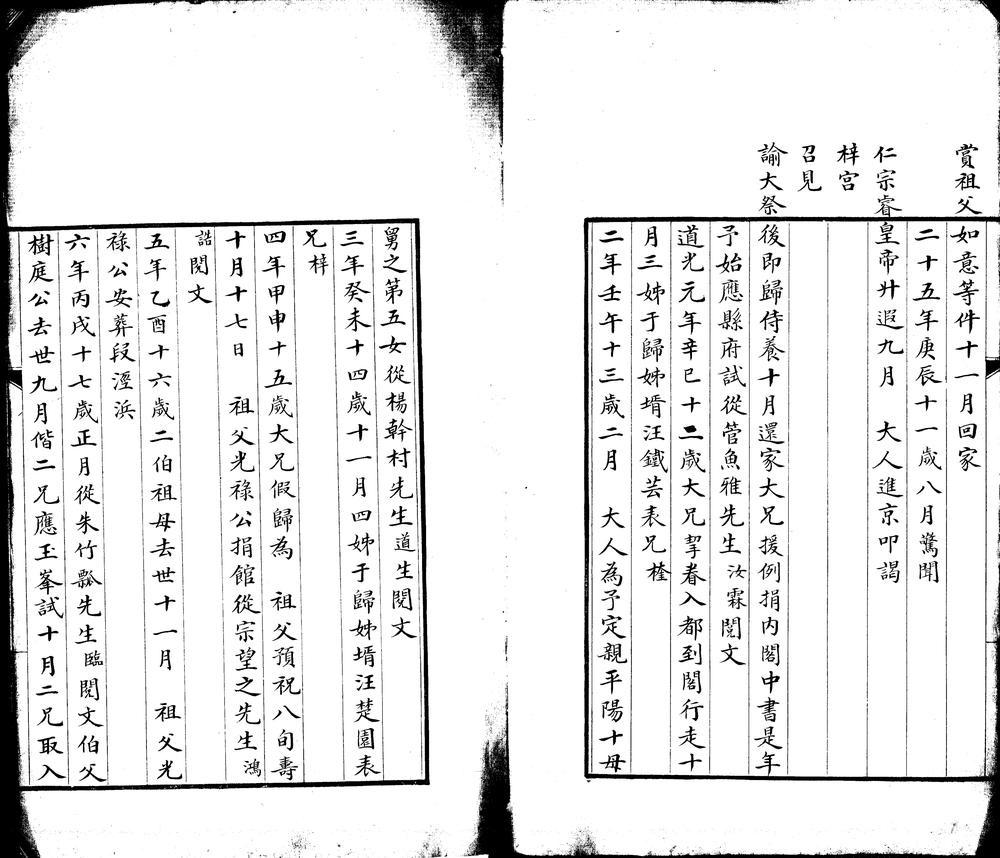 賞祖父如意等件十一月回家
二十五年庚辰十一歲八月驚聞
仁宗睿皇帝升遐九月 大人進京叩謁
梓宮
召見
諭大祭後即歸侍養十月還家大兄援例捐內閣中書是年
予始應縣府試從管魚雅先生汝霖閱文
道光元年辛巳十二歲大兄挈眷入都到閣行走十
月三姊于歸姊壻汪鐵芸表兄楏
二年壬午十三歲二月 大人為予定親平陽十母
舅之第五女從楊幹村先生道生閱文
三年癸未十四歲十一月四姊于歸姊壻汪楚園表
兄梓
四年甲申十五歲大兄假歸為 祖父預祝八旬壽
十月十七日 祖父光祿公捐館從宗望之先生鴻
誥閱文
五年乙酉十六歲二伯祖母去世十一月 祖父光
祿公安葬段涇浜
六年丙戌十七歲正月從朱竹瓢先生臨閱文伯父
樹庭公去世九月偕二兄應玉峯試十月二兄取入